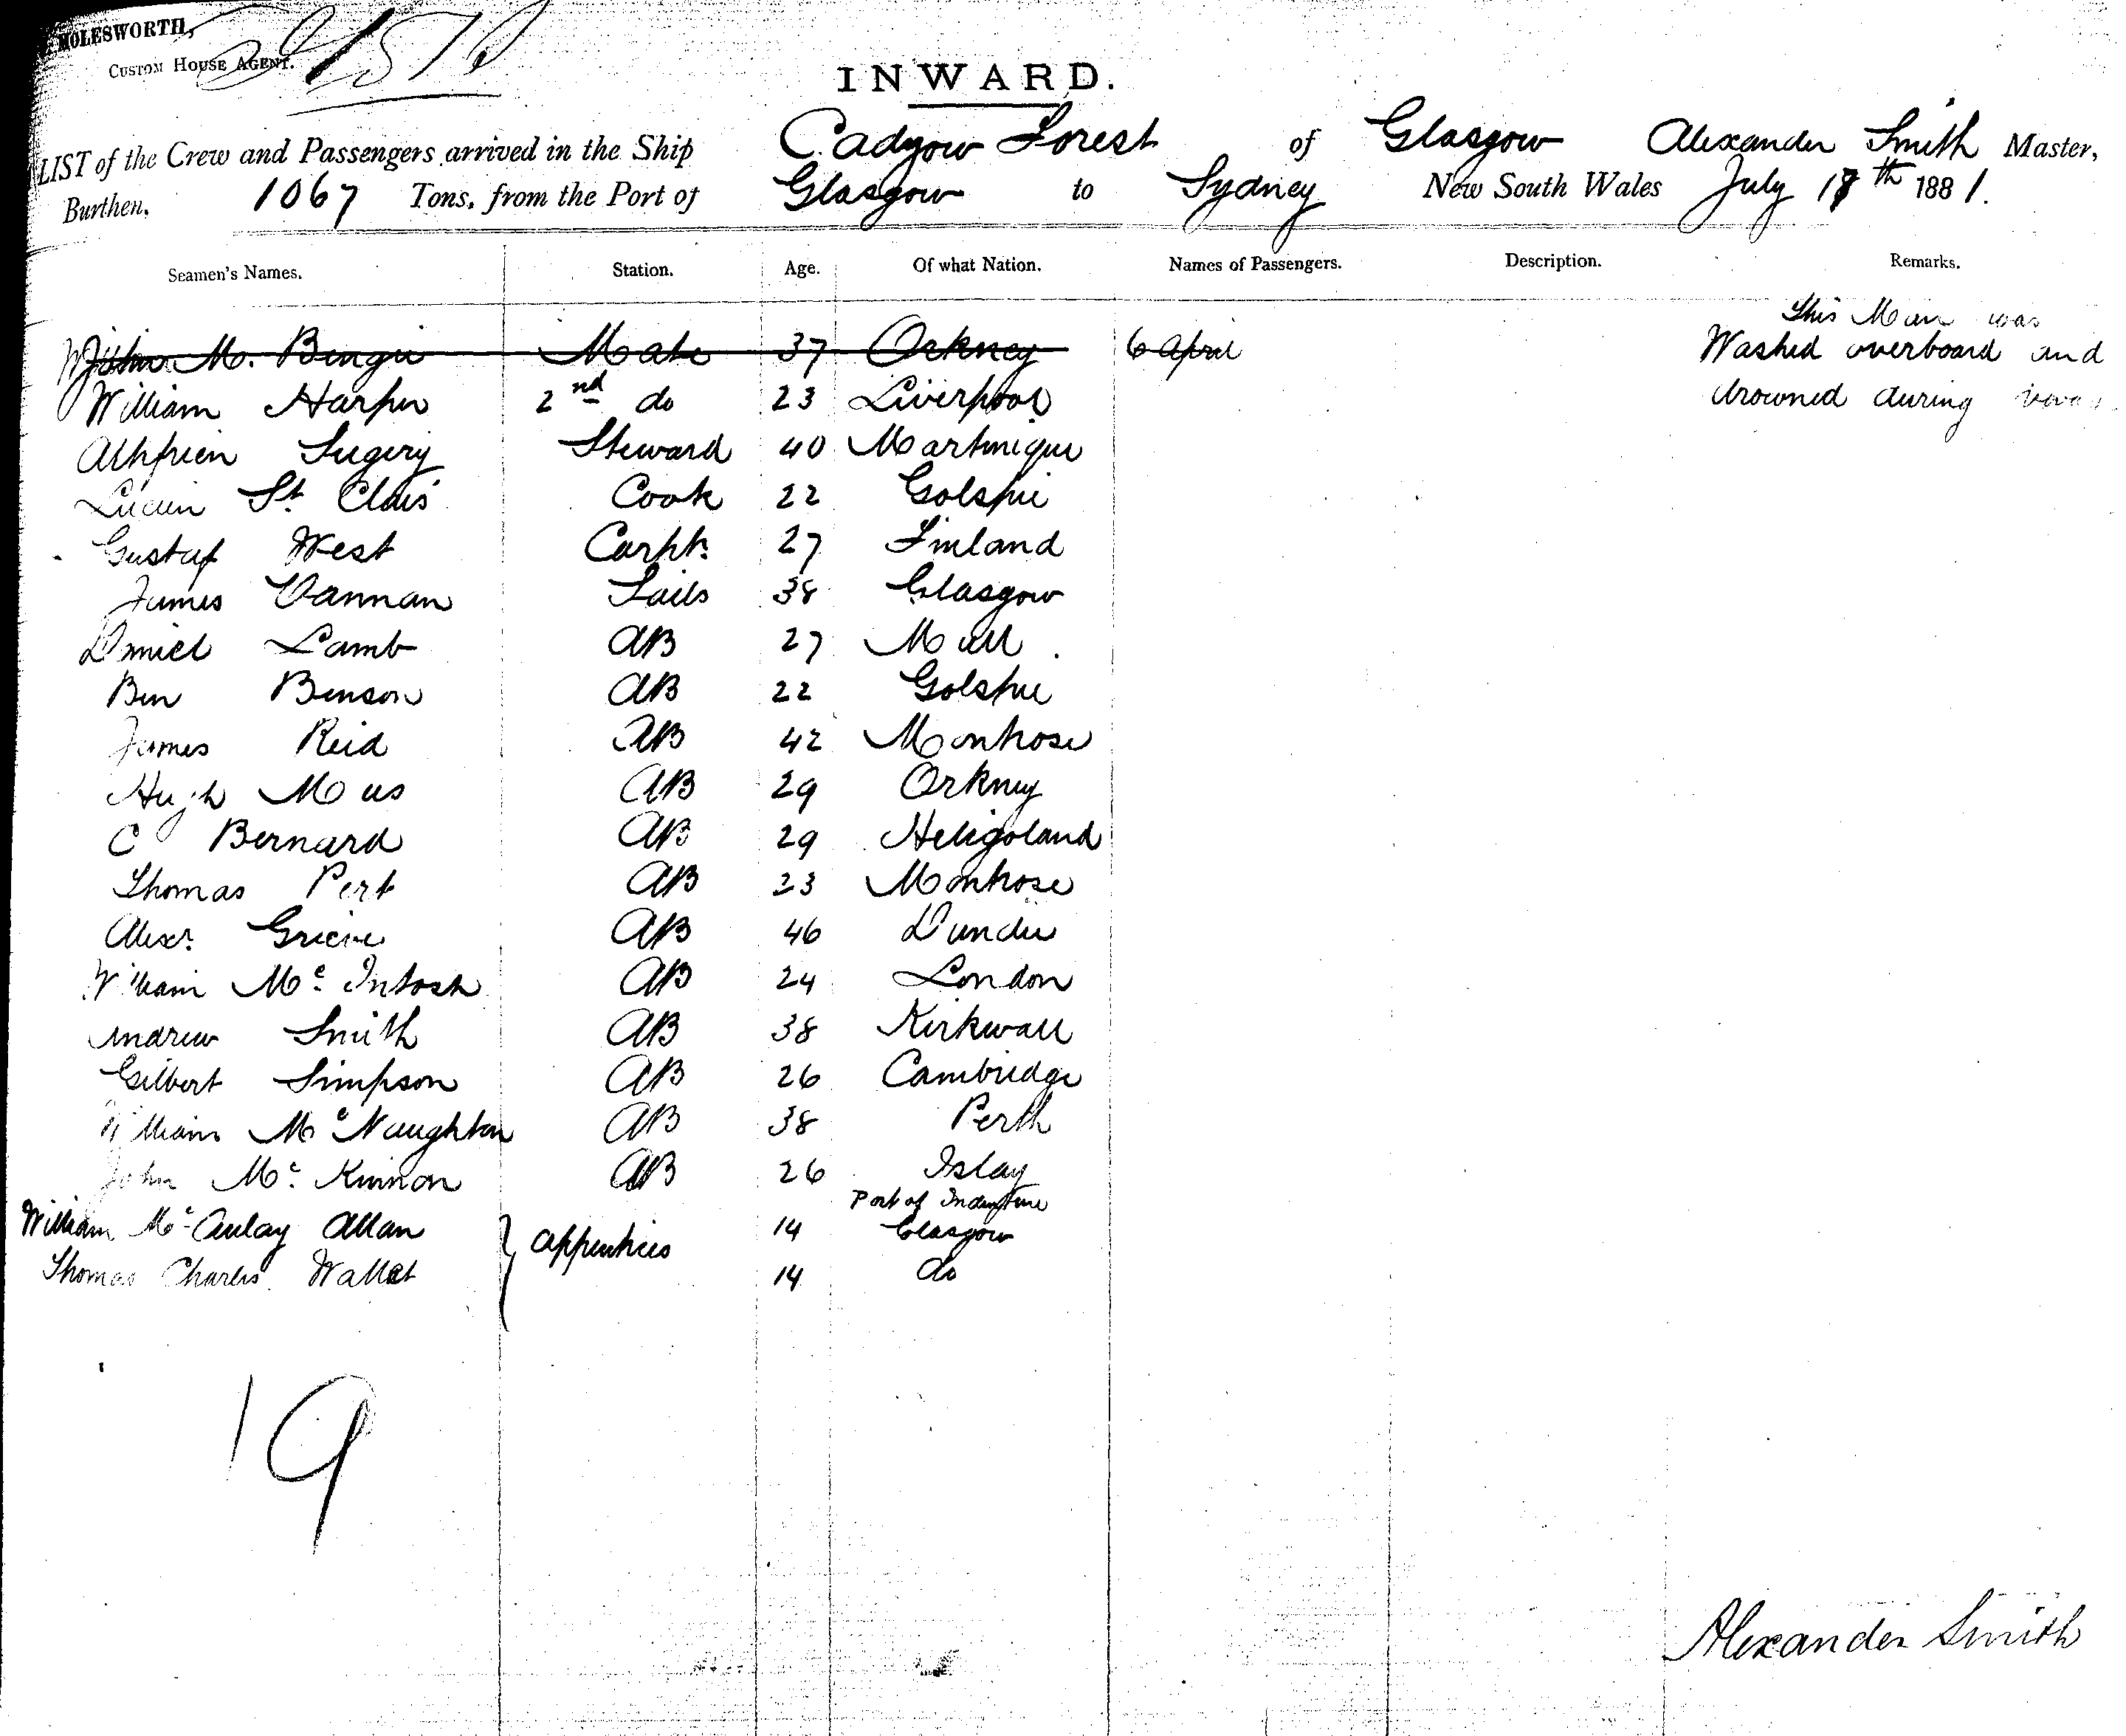 MOLESWORTH,
CUSTOM HOUSE AGENT.
INWARD.
LIST of the Crew and Passengers arrived in the Ship Cadzow Forest of Glasgow Alexander Smith Master,
Burthen, 1067 Tons, from the Port of Glasgow to Sydney New South Wales July 18th 1881.
Seamen's Names. Station. Age. Of what Nation. Names of Passengers. Description. Remarks.
This Man was
M. Mate 37 Orkney 6 April Washed overboard and
William Harper 2nd do 23 Liverpool drowned during
Steward 40 Martinique
Lucien St. Clair Cook 22 Golspie
Gustaf West Carptr. 27 Finland
James Vannan Sails 38 Glasgow
Daniel Lamb AB 27 Mull
Ben Benson AB 22 Golspie
James Reid AB 42 Montrose
Hugh AB 29 Orkney
C Bernard AB 29 Heligoland
Thomas Pert AB 23 Montrose
Alexr. Grieve AB 46 Dundee
William Mc Intosh AB 24 London
Andrew Smith AB 38 Kirkwall
Gilbert Simpson AB 26 Cambridge
William Mc Naughton AB 38 Perth
John Mc Kinnon AB 26 Islay
Port of Indenture
William Mc Aulay Allan 14 Glasgow
Apprentices
Thomas Charles Wallet 14 do
19
Alexander Smith